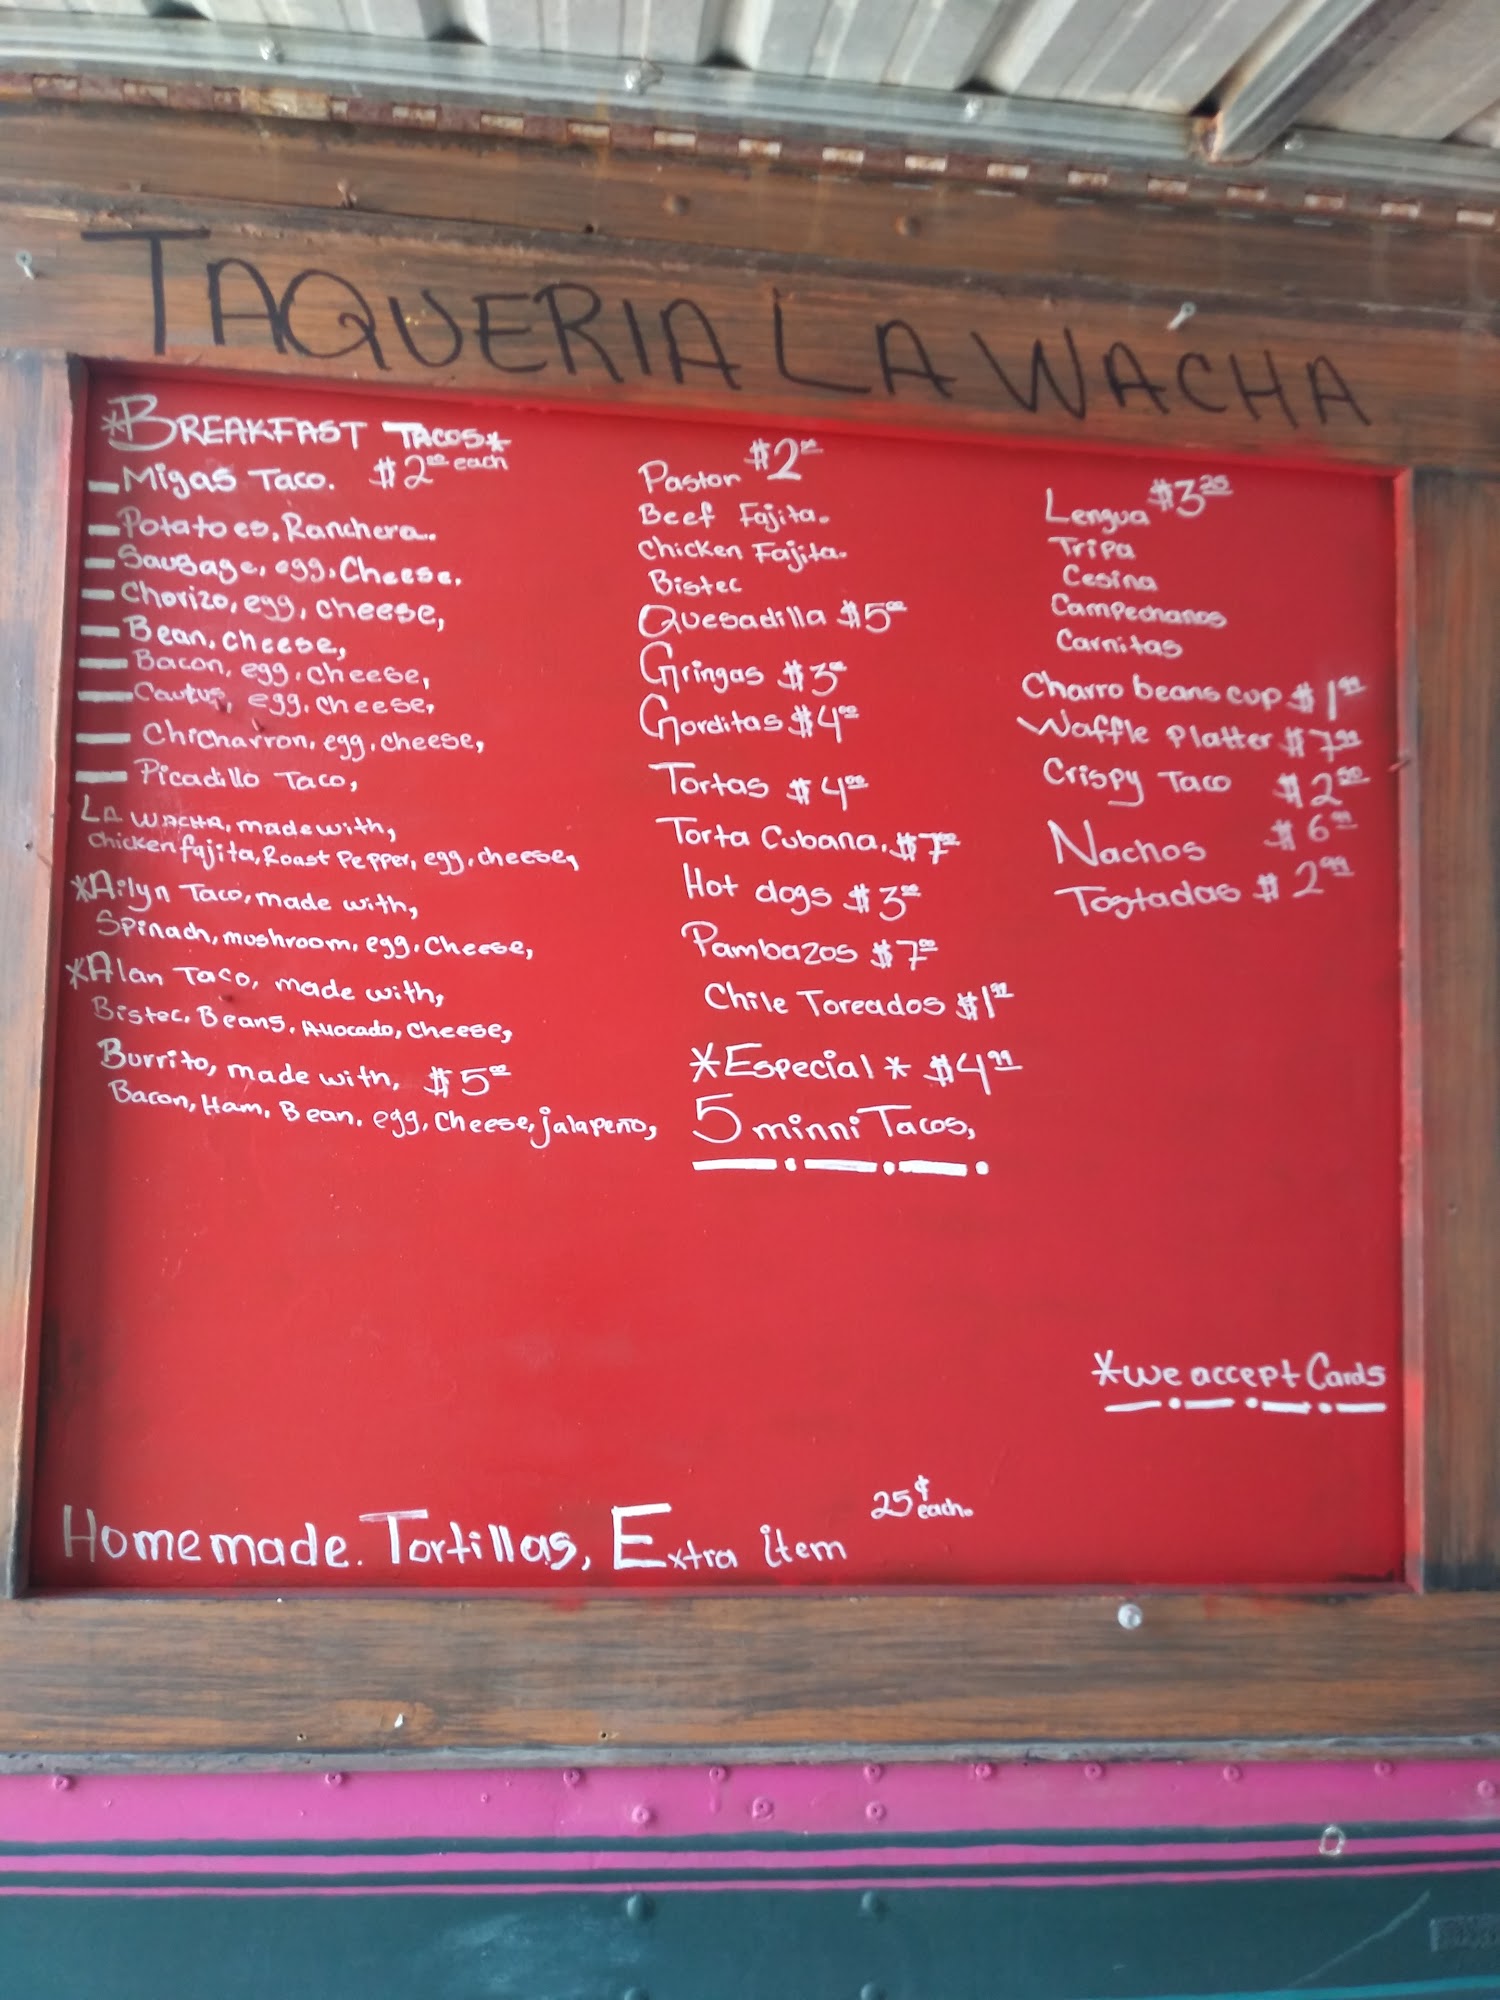 TAQUERIA LA WACHA
*BREAKFAST TACOS*
Migas Taco. $2.00 each
Potatoes, Ranchera.
Sausage, egg, Cheese,
Chorizo, egg, cheese,
Bean, cheese,
Bacon, egg, cheese,
egg, cheese,
Chicharron, egg, cheese,
Picadillo Taco,
LA WACHA, made with,
Chicken fajita, Roast Pepper, egg, cheese,
*Ailyn Taco, made with,
Spinach, mushroom, egg, Cheese,
*Alan Taco, made with,
Bistec, Beans, Avocado, cheese,
Burrito, made with, $5.00
Bacon, Ham, Bean, egg, Cheese, jalapeño,
Pastor $2.00
Beef Fajita.
Chicken Fajita.
Bistec
Quesadilla $5.00
Gringas $3.00
Gorditas $4.00
Tortas $4.00
Torta Cubana. $7.00
Hot dogs $3.00
Pambazos $7.00
Chile Toreados $1.99
*Especial* $4.99
5 minni Tacos,
Lengua $3.25
Tripa
Cesina
Campechanos
Carnitas
Charro beans cup $1.99
Waffle Platter $7.99
Crispy Taco $2.50
Nachos $6.99
Tostadas $2.99
*we accept Cards
Homemade. Tortillas, Extra item 25¢ each.